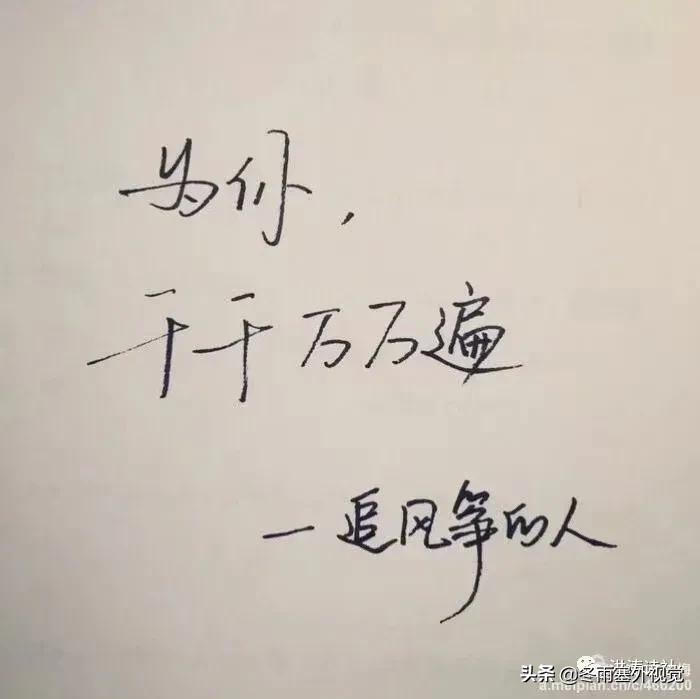 为你，
千千万万遍
— 追风筝的人
头条 @冬雨塞外视觉
a.meipian.cn/c/466200